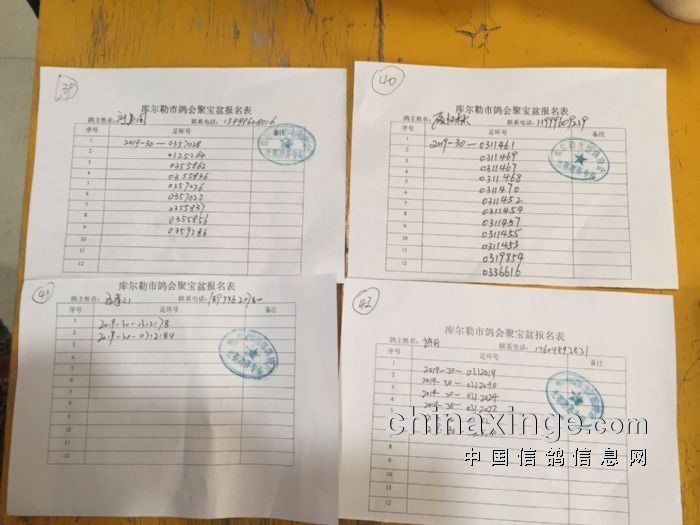 39
库尔勒市鸽会聚宝盆报名表
鸽主姓名： 联系电话：13999608016
序号 足环号 备注
1 2019-30-0357028
2 0325264
3 0355862
4 0355836
5 0357026
6 0357022
7 0355837
8 0355856
9 0359286
10
11
12
40
库尔勒市鸽会聚宝盆报名表
鸽主姓名： 联系电话：13999609239
序号 足环号 备注
1 2019-30-0311461
2 0311469
3 0311467
4 0311468
5 0311470
6 0311452
7 0311454
8 0311457
9 0311455
10 0311453
11 0319854
12 0336616
41
库尔勒市鸽会聚宝盆报名表
鸽主姓名： 联系电话：
序号 足环号 备注
1 2019-30-0312178
2 2019-30-0312184
3
4
5
6
7
8
9
10
11
12
42
库尔勒市鸽会聚宝盆报名表
鸽主姓名： 联系电话：
序号 足环号 备注
1 2019-30-0312019
2 2019-30-0312040
3 2019-30-0312024
4 2019-30-0312022
chinaxinge.com
中国信鸽信息网
12